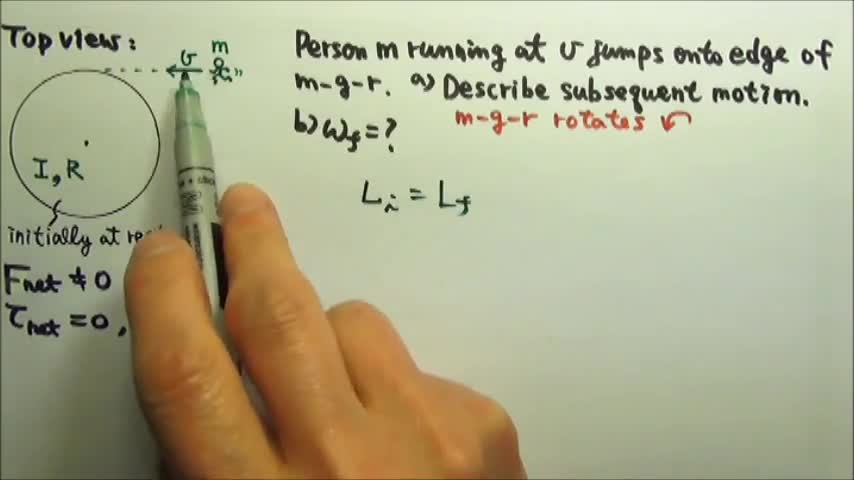 Top view:
v m
I, R
initially at
Fnet ≠ 0
τnet = 0,
Person m running at v jumps onto edge of
m-g-r. a) Describe subsequent motion.
m-g-r rotates ↶
b) ωf = ?
Li = Lf